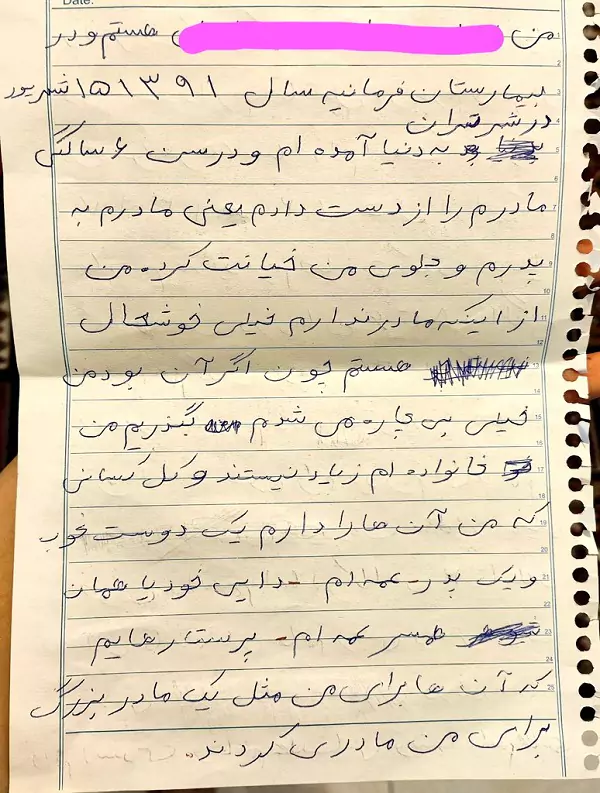 Date:
من هستم و در
بیمارستان فرمانیه سال ۱۳۹۱ ۱۵ شهریور
در شهر تهران
به دنیا آمده ام و در سن ۶ سالگی
مادرم را از دست دارم یعنی مادرم به
پدرم و جلوی من خیانت کرد. من
از اینکه مادر ندارم خیلی خوشحال
هستم چون اگر آن بود من
خیلی بی چاره می شدم بگذریم من
خانواده ام زیاد نیستند و کل کسانی
که من آن ها را دارم یک دوست خوب
و یک پدر - عمه ام - دایی خود یا همان
همسر عمه ام - پرستار هایم
که آن ها برای من مثل یک مادر بزرگ
برای من مادری کرداند.